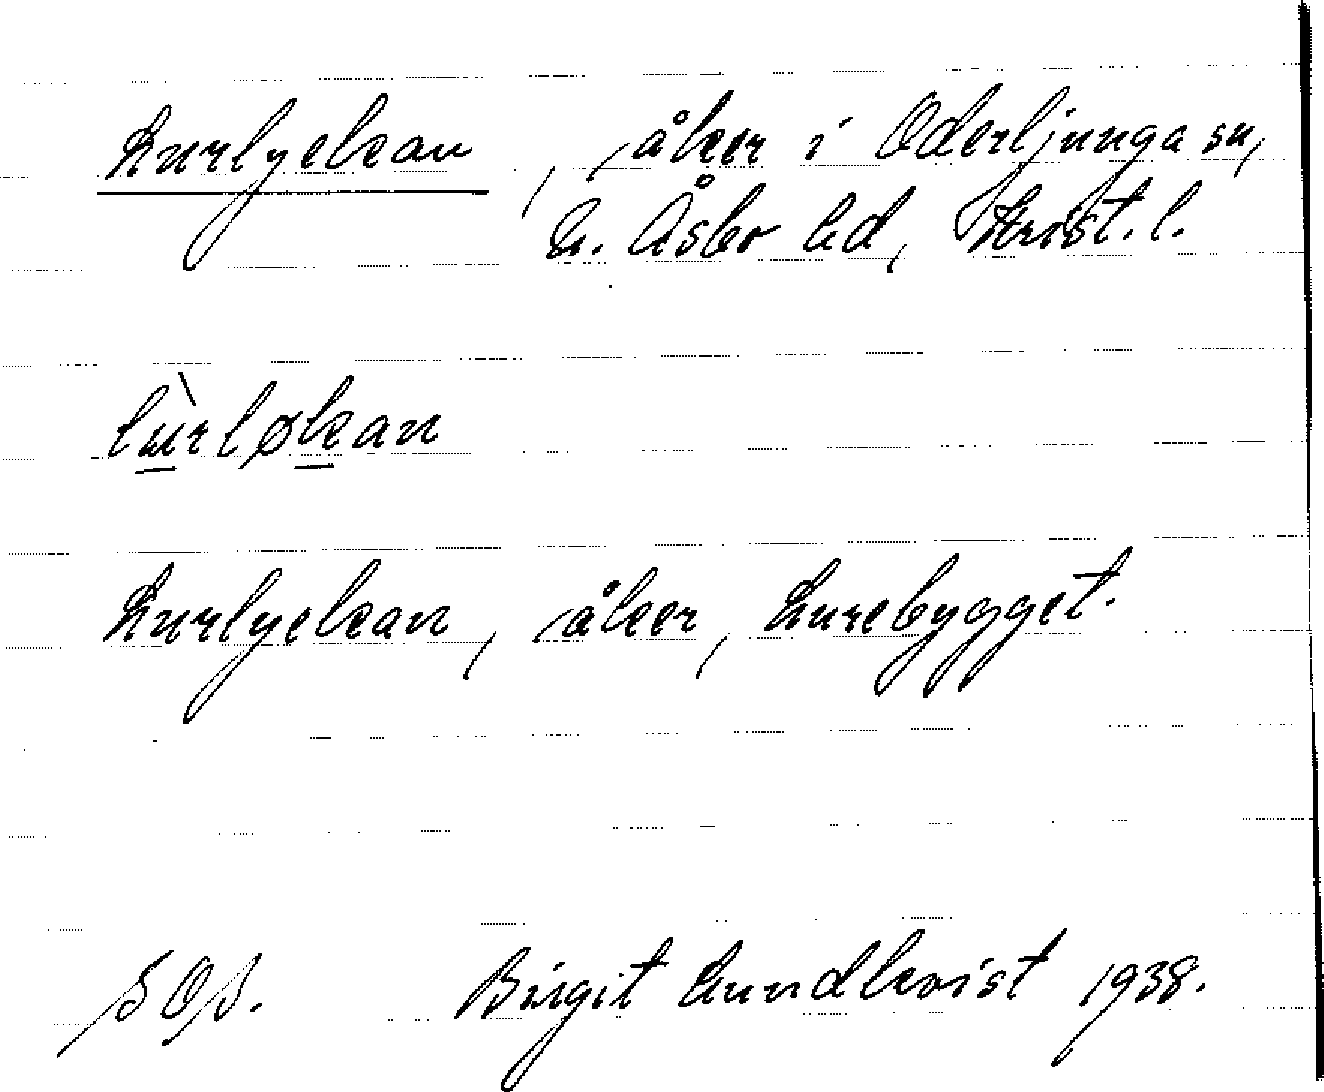 Lurlyckan, åker i Oderljunga sn,
N. Åsbo hd, Krist. l.
lùrløkan
Lurlyckan, åker, Lurebygget.
SOS. Birgit Lundkvist 1938.